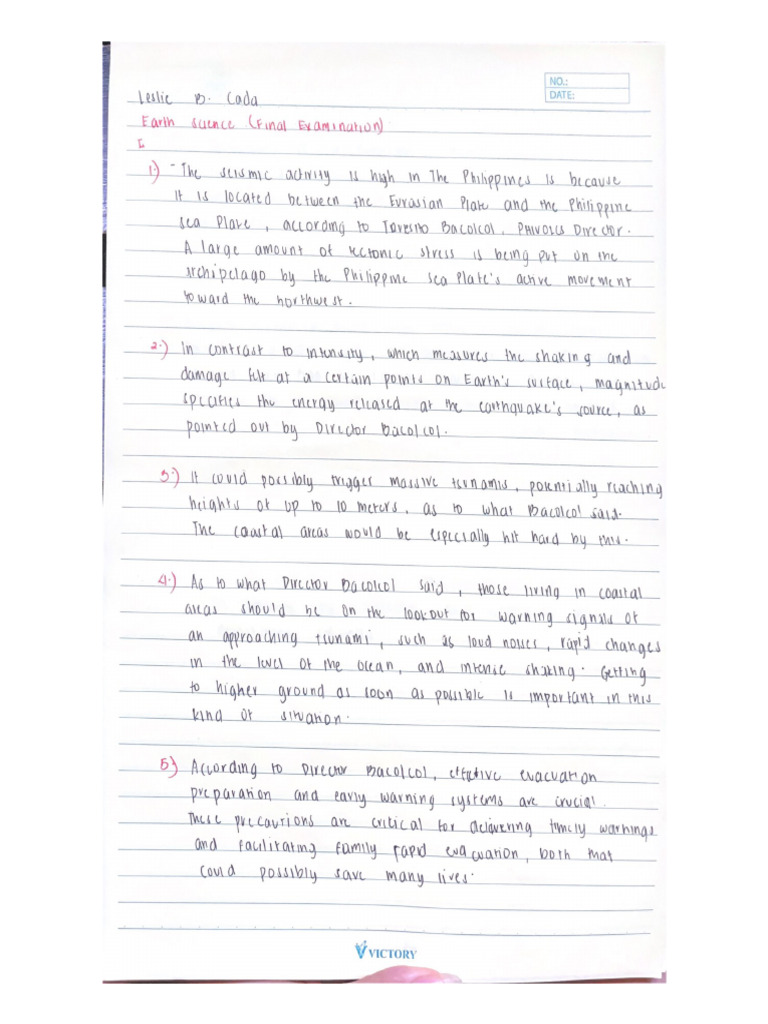 NO.:
DATE:
Leslie B. Cada
Earth Science (Final Examination)
I
1.) - The seismic activity is high in The Philippines is because
it is located between the Eurasian Plate and the Philippine
Sea Plate, according to Bacolcol, PHIVOLCS Director.
A large amount of tectonic stress is being put on the
archipelago by the Philippine Sea Plate's active movement
toward the northwest.
2.) In contrast to intensity, which measures the shaking and
damage felt at a certain points on Earth's surface, magnitude
specifies the energy released at the earthquake's source, as
pointed out by Director Bacolcol.
3.) It could possibly trigger massive tsunamis, potentially reaching
heights of up to 10 meters, as to what Bacolcol said.
The coastal areas would be especially hit hard by this.
4.) As to what Director Bacolcol said, those living in coastal
areas should be on the lookout for warning signals of
an approaching tsunami, such as loud noises, rapid changes
in the level of the ocean, and intense shaking. Getting
to higher ground as soon as possible is important in this
kind of situation.
5.) According to Director Bacolcol, effective evacuation
preparation and early warning systems are crucial.
These precautions are critical for delivering timely warnings
and facilitating family rapid evacuation, both that
could possibly save many lives.
VICTORY